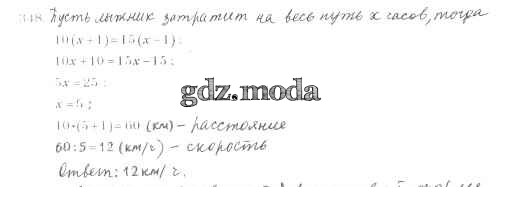 348. Пусть лыжник затратит на весь путь x часов, тогда
10(x+1)=15(x-1);
10x+10=15x-15;
5x=25;
x=5;
gdz.moda
10•(5+1)=60 (км) – расстояние
60:5=12 (км/г) – скорость
Ответ: 12 км/г.